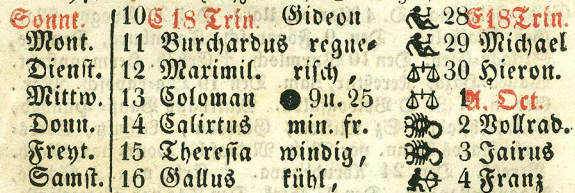 Sonnt. 10 C 18 Trin. Gideon 28 E18Trin.
Mont. 11 Burchardus regne- 29 Michael
Dienst. 12 Maximil. risch, 30 Hieron.
Mittw. 13 Coloman 9u. 25 1 A. Oct.
Donn. 14 Calixtus min. fr. 2 Vollrad.
Freyt. 15 Theresia windig, 3 Jairus
Samst. 16 Gallus kühl, 4 Franz